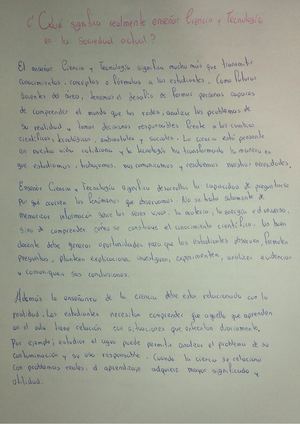 ¿Qué significa realmente enseñar Ciencia y Tecnología
en la sociedad actual?
El enseñar Ciencia y Tecnología significa mucho más que transmitir
conocimientos, conceptos o fórmulas a los estudiantes. Como futuros
docentes del área, tenemos el desafío de formar personas capaces
de comprender el mundo que los rodea, analizar los problemas de
su realidad y tomar decisiones responsables frente a los cambios
científicos, tecnológicos, ambientales y sociales. La ciencia está presente
en nuestra vida cotidiana y la tecnología ha transformado la manera en
que estudiamos, trabajamos, nos comunicamos y resolvemos nuestras necesidades.
Enseñar Ciencia y Tecnología significa desarrollar la capacidad de preguntarse
por qué ocurren los fenómenos que observamos. No se trata solamente de
memorizar información sobre los seres vivos, la materia, la energía o el universo,
sino de comprender cómo se construye el conocimiento científico. Un buen
docente debe generar oportunidades para que los estudiantes observen, formulen
preguntas, planteen explicaciones, investiguen, experimenten, analicen evidencias
y comuniquen sus conclusiones.
Además la enseñanza de la ciencia debe estar relacionada con la
realidad. Los estudiantes necesitan comprender que aquello que aprenden
en el aula tiene relación con situaciones que enfrentan diariamente.
Por ejemplo, estudiar el agua puede permitir analizar el problema de su
contaminación y su uso responsable. Cuando la ciencia se relaciona
con problemas reales, el aprendizaje adquiere mayor significado y
utilidad.